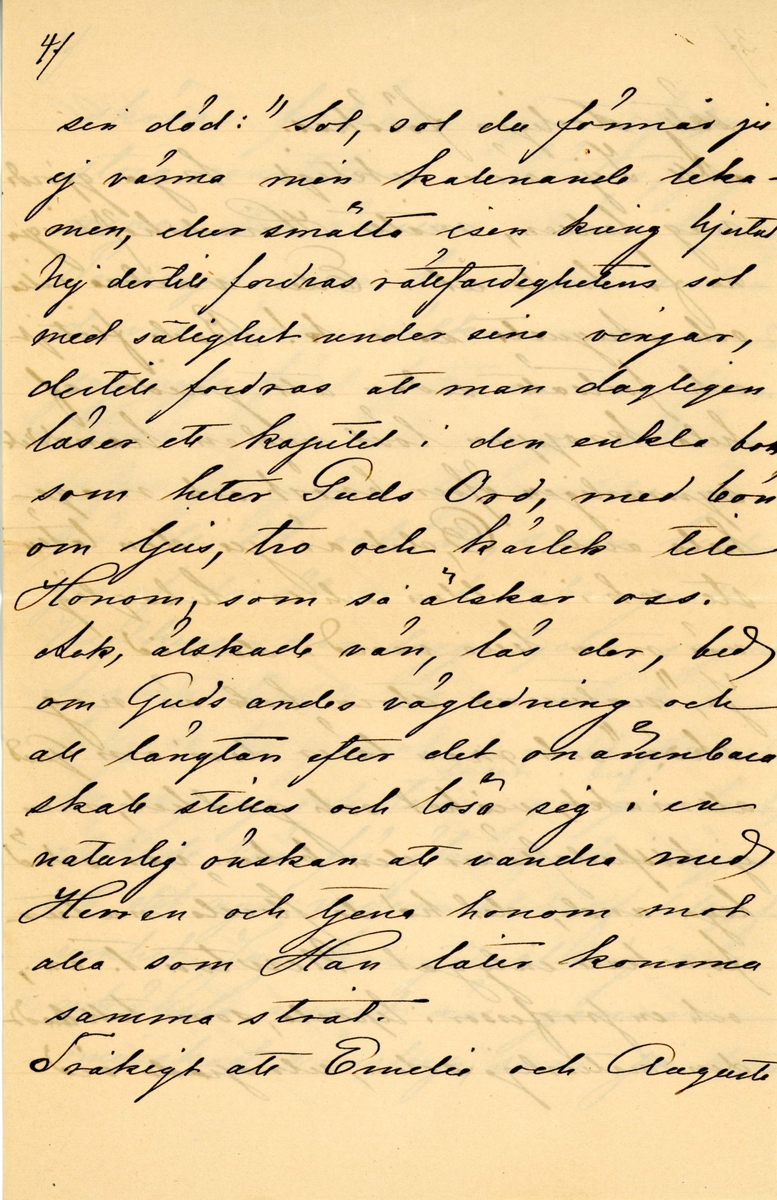 4/
sin död: "Sol, sol du förmår ju
ej värma min kallnande leka-
men, eller smälta isen kring hjertat
Nej dertill fordras rättfärdighetens sol
med salighet under sina vingar,
dertill fordras att man dagligen
läser ett kapitel i den enkla bok
som heter Guds Ord, med bön
om ljus, tro och kärlek till
Honom, som så älskar oss.
Ack, älskade vän, läs der, bed
om Guds andes vägledning och
all längtan efter det onämnbara
skall stillas och lösa sig i en
naturlig önskan att vandra med
Herren och tjena honom mot
alla som Han låter komma
samma stråt.
Tråkigt att Emelie och Auguste